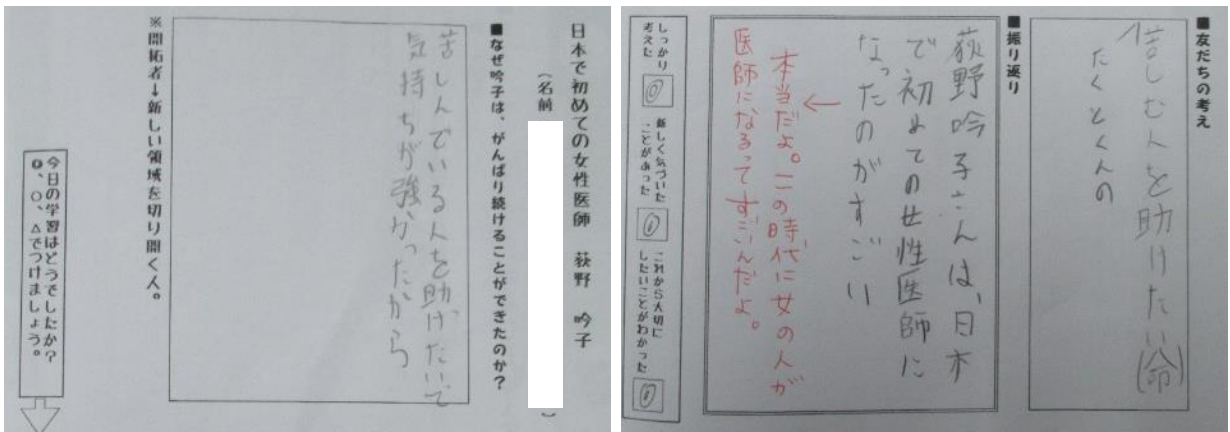 日本で初めての女性医師 荻野 吟子
(名前 )
■なぜ吟子は、がんばり続けることができたのか?
苦しんでいる人を助けたいって
気持ちが強かったから
※開拓者→新しい領域を切り開く人。
今日の学習はどうでしたか?
◎、○、△でつけましょう。
■友だちの考え
苦しむ人を助けたい(命)
たくとくんの
■振り返り
荻野吟子さんは、日本
で初めての女性医師に
なったのがすごい
本当だよ。この時代に女の人が
医師になるってすごいんだよ。
しっかり
考えた
◎
新しく気づいた
ことがあった
◎
これから大切に
したいことがわかった
◎